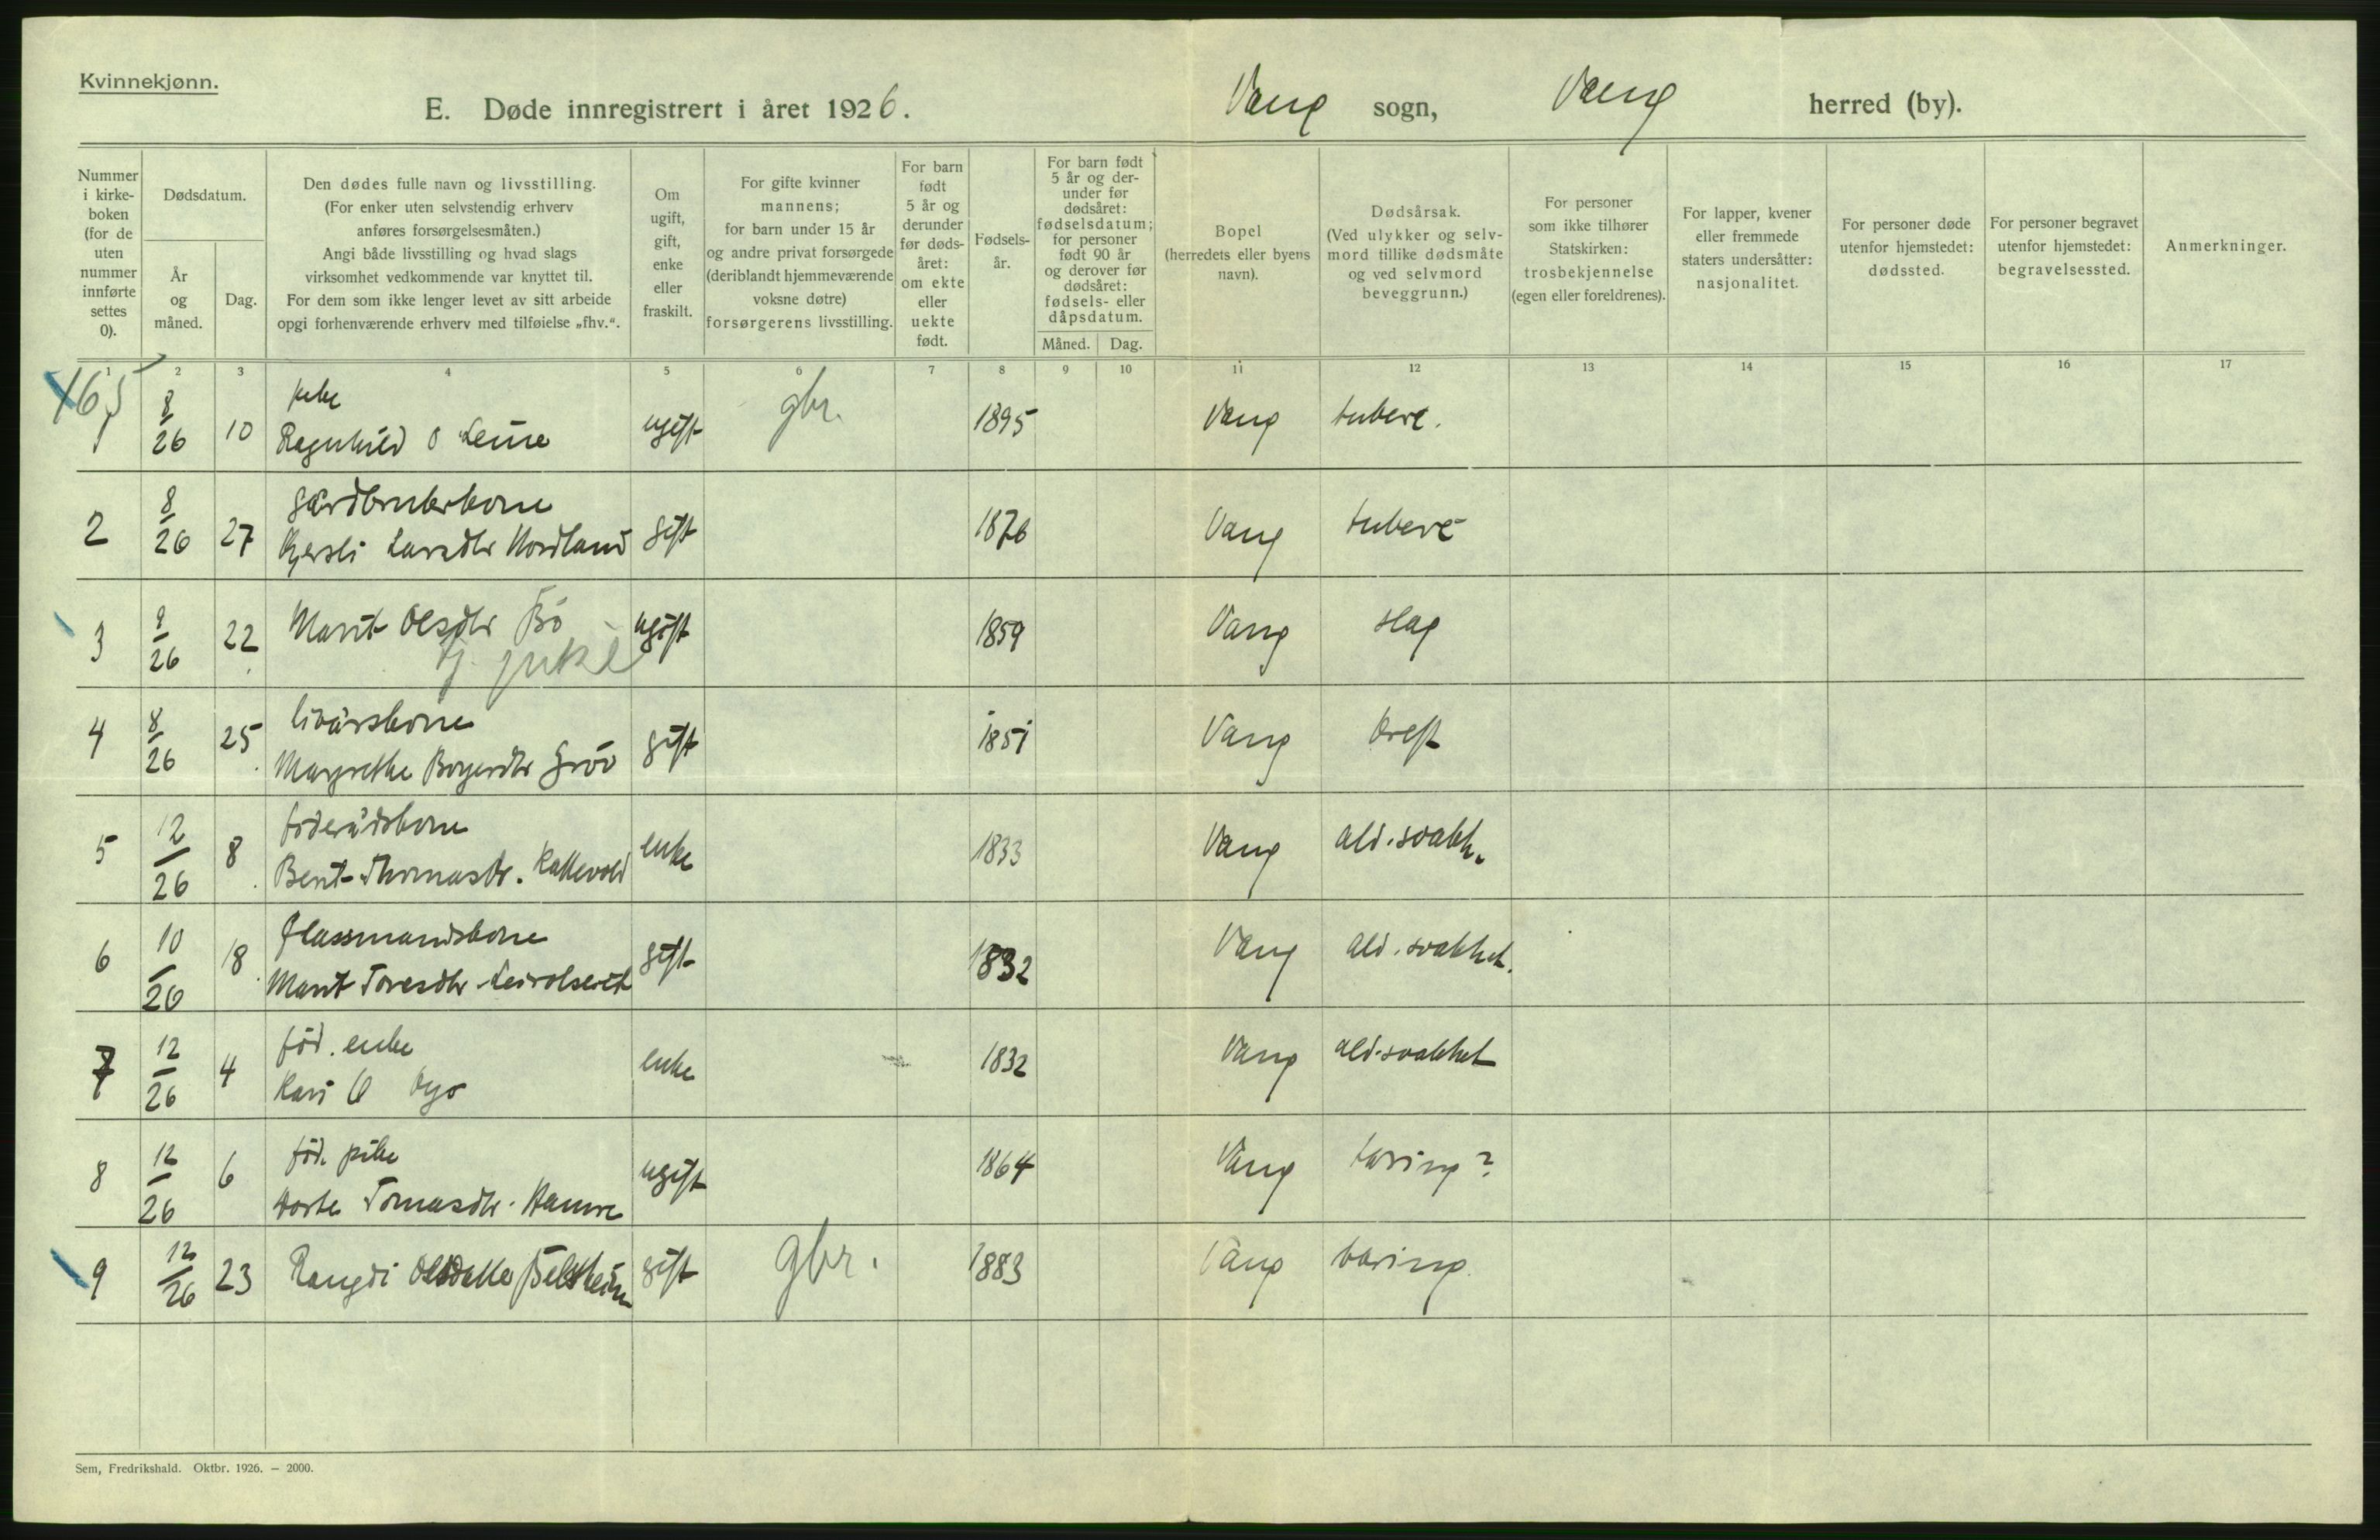 Kvinnekjønn.
E. Døde innregistrert i året 1926. Vang sogn, Vang herred (by).
Nummer i kirke-boken (for de uten nummer innførte settes 0).
Dødsdatum.
År og måned.
Dag.
Den dødes fulle navn og livsstilling.
(For enker uten selvstendig erhverv
anføres forsørgelsesmåten.)
Angi både livsstilling og hvad slags
virksomhet vedkommende var knyttet til.
For dem som ikke lenger levet av sitt arbeide
opgi forhenværende erhverv med tilføielse „fhv.“.
Om
ugift,
gift,
enke
eller
fraskilt.
For gifte kvinner
mannens;
for barn under 15 år
og andre privat forsørgede
(deriblandt hjemmeværende
voksne døtre)
forsørgerens livsstilling.
For barn
født
5 år og
derunder
før døds-
året:
om ekte
eller
uekte
født.
Fødsels-
år.
For barn født
5 år og der-
under før
dødsåret:
fødselsdatum;
for personer
født 90 år
og derover før
dødsåret:
fødsels- eller
dåpsdatum.
Måned. Dag.
Bopel
(herredets eller byens
navn).
Dødsårsak.
(Ved ulykker og selv-
mord tillike dødsmåte
og ved selvmord
beveggrunn.)
For personer
som ikke tilhører
Statskirken:
trosbekjennelse
(egen eller foreldrenes).
For lapper, kvener
eller fremmede
staters undersåtter:
nasjonalitet.
For personer døde
utenfor hjemstedet:
dødssted.
For personer begravet
utenfor hjemstedet:
begravelsessted.
Anmerkninger.
1 2 3 4 5 6 7 8 9 10 11 12 13 14 15 16 17
165
pike
1 8/26 10 Ragnhild O Leine ugift gbr. 1895 Vang tuberc.
gårdbrukerkone
2 8/26 27 Kjersti Larsdtr Nordland gift 1876 Vang tuberc
3 9/26 22 Marit Olsdtr Bö ugift 1859 Vang slag
tj. pike
livårskone
4 8/26 25 Margrethe Boyesdtr Gröv gift 1851 Vang kreft
föderådskone
5 12/26 8 Berit Thomasdr. Kattevold enke 1833 Vang ald.svakh.
Plassmandskone
6 10/26 18 Marit Toresdtr gift 1832 Vang ald.svakhet.
föd. enke
7 12/26 4 Kari O enke 1832 Vang ald.svakhet
föd. pike
8 12/26 6 Dorte Tomasdtr. Hamre ugift 1864 Vang tæring?
9 12/26 23 Rangdi Olsdatter Belsheim gift gbr. 1883 Vang tæring.
Sem, Fredrikshald. Oktbr. 1926. — 2000.